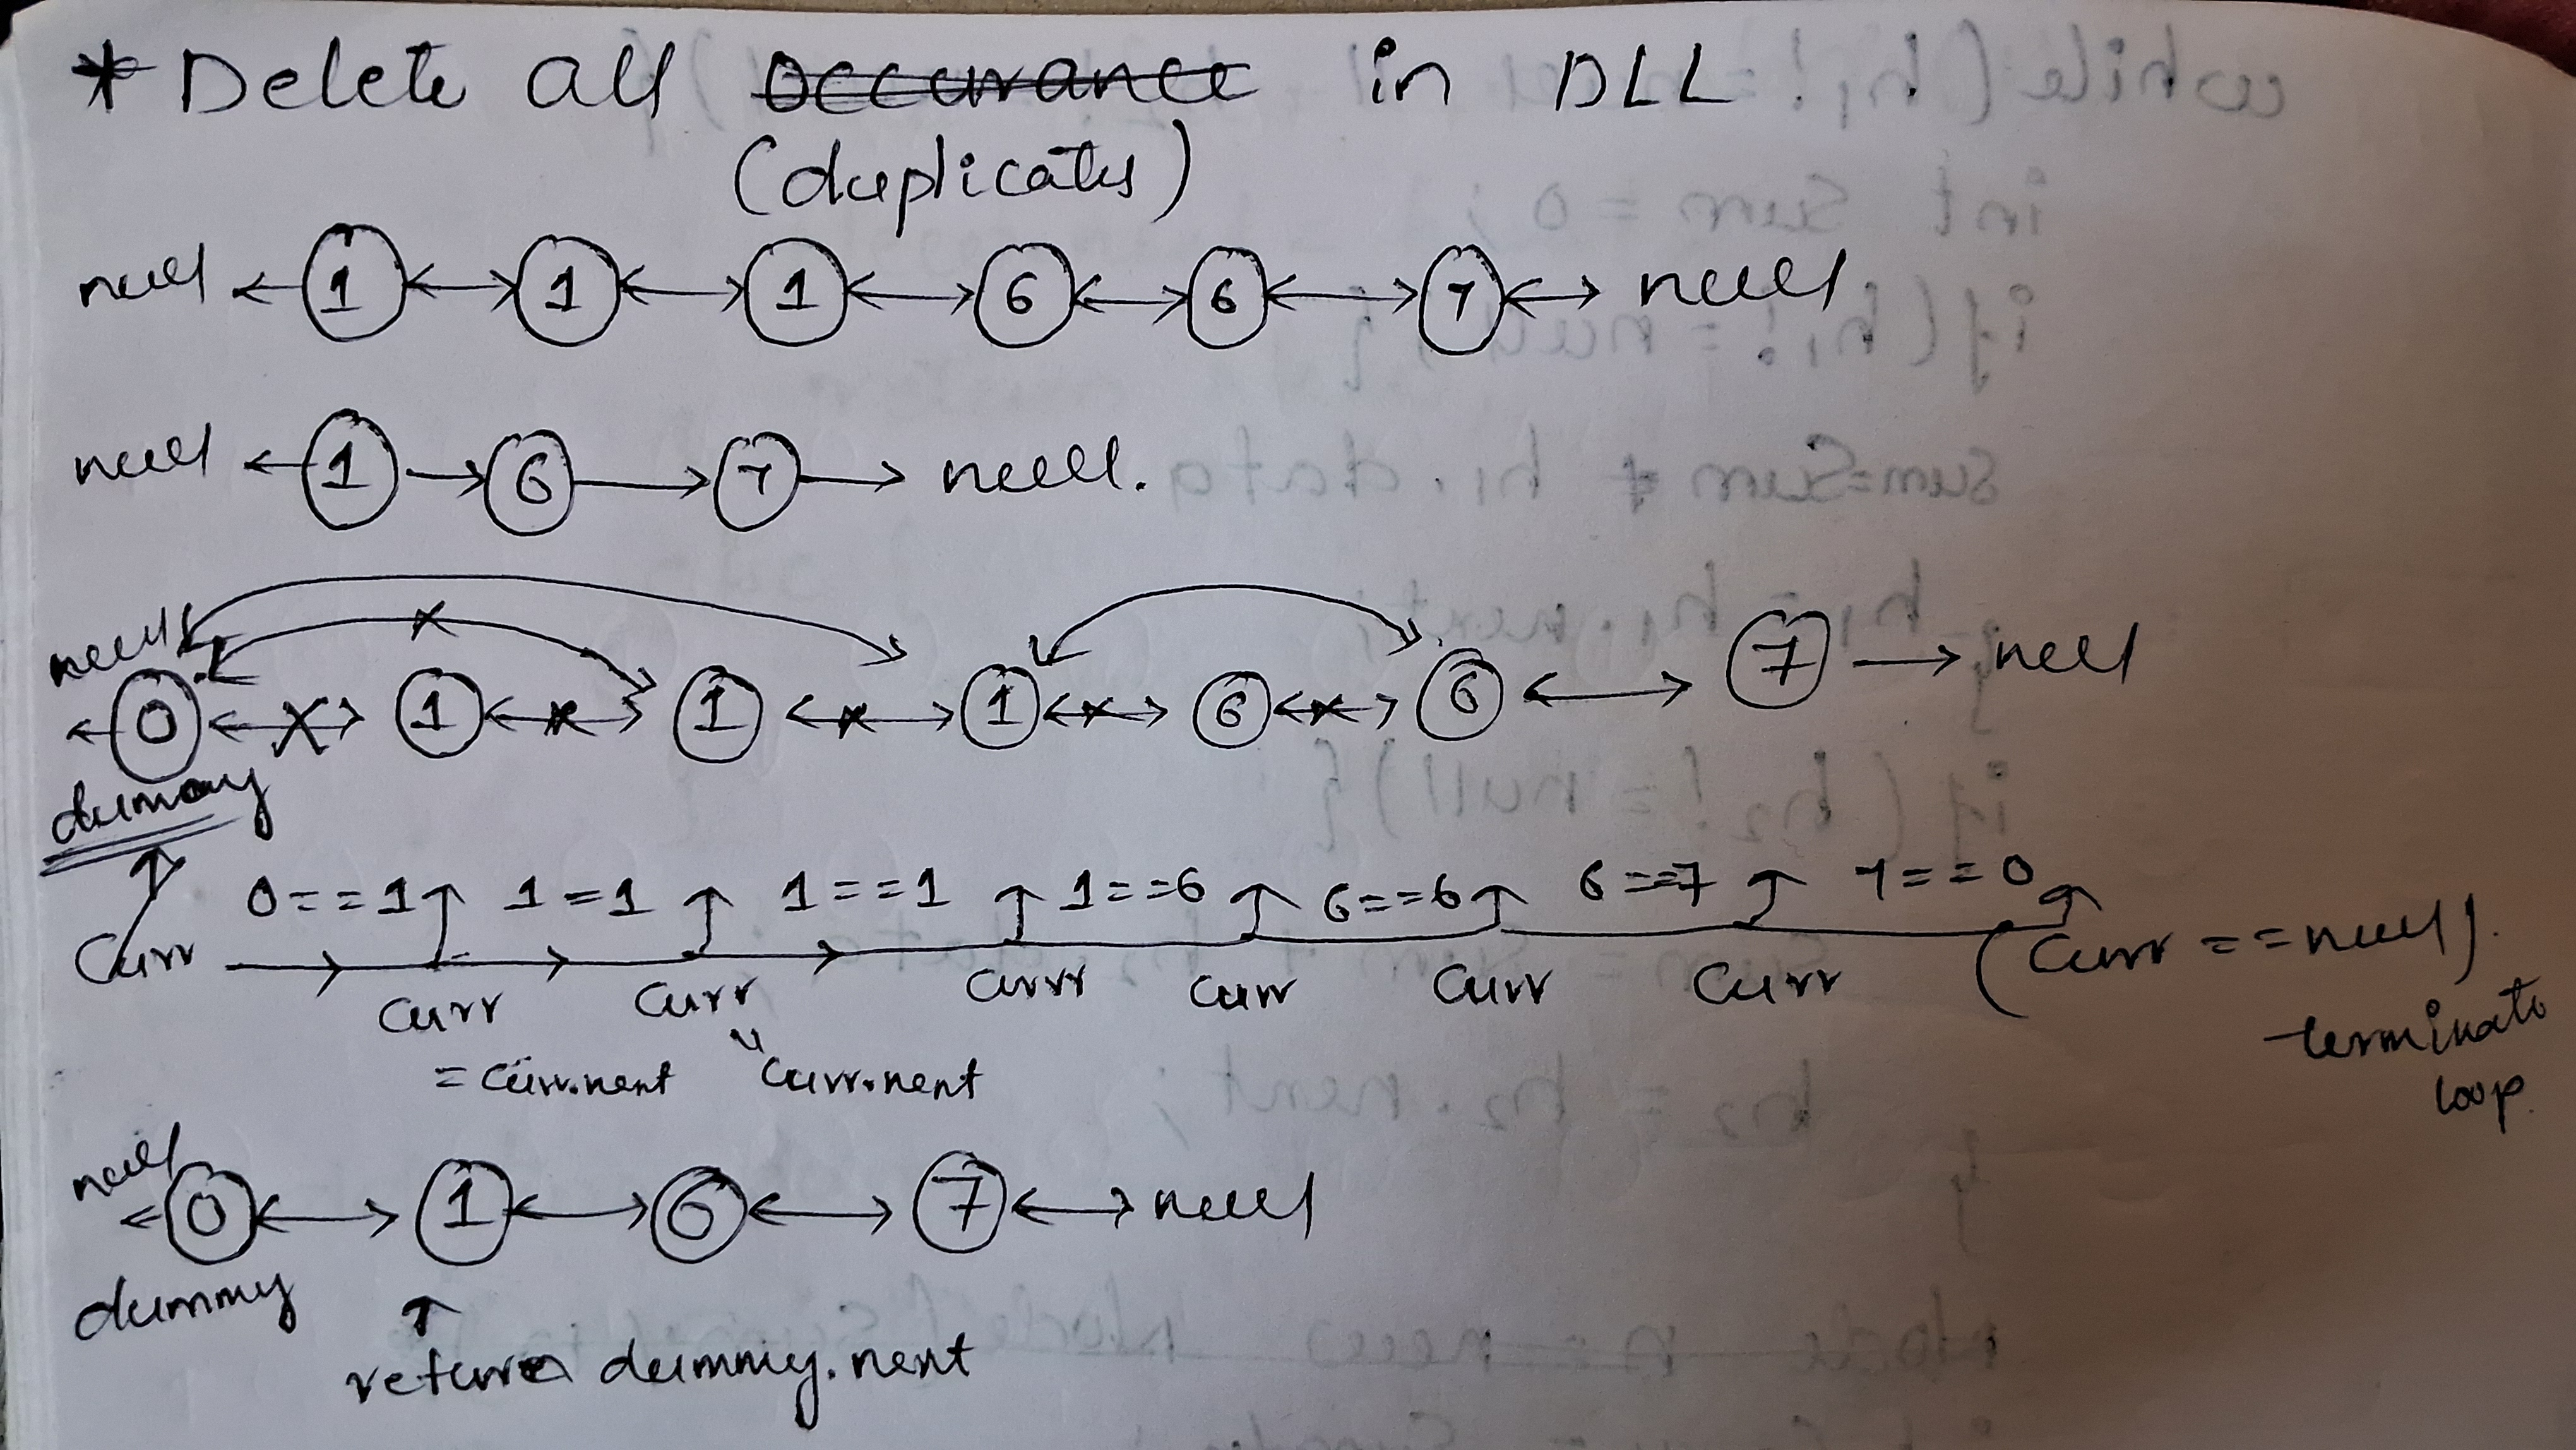 * Delete all Occurance in DLL
(duplicates)
null ← 1 ↔ 1 ↔ 1 ↔ 6 ↔ 6 ↔ 7 ↔ null
null ← 1 → 6 → 7 → null.
null ← 0 ↔ 1 ↔ 1 ↔ 1 ↔ 6 ↔ 6 ↔ 7 → null
dummy
0 == 1 ↑ 1 = 1 ↑ 1 == 1 ↑ 1 == 6 ↑ 6 == 6 ↑ 6 == 7 ↑ 7 == 0
Curr → curr curr curr curr curr curr (Curr == null).
= curr.next curr.next
terminate
loop.
null ← 0 ↔ 1 ↔ 6 ↔ 7 ↔ null
dummy ↑
return dummy.next